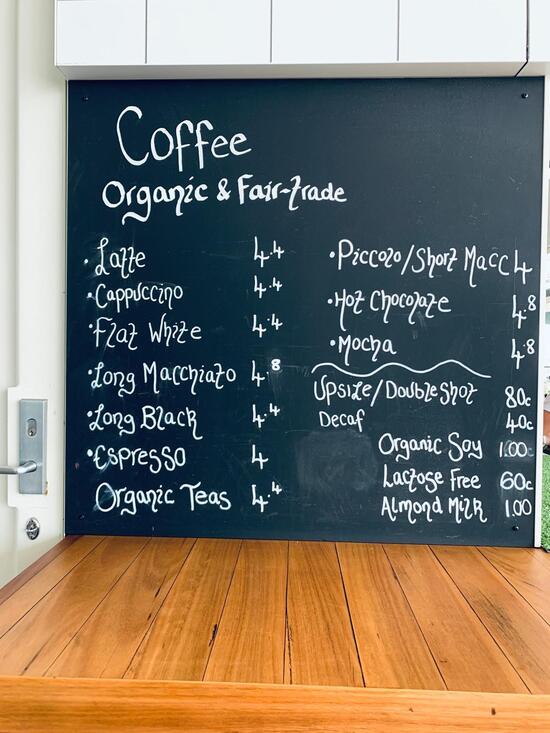 Coffee
Organic & Fair-trade
• Latte 4.4
• Cappuccino 4.4
• Flat White 4.4
• Long Macchiato 4.8
• Long Black 4.4
• Espresso 4
Organic Teas 4.4
• Piccolo/Short Macc 4
• Hot Chocolate 4.8
• Mocha 4.8
Upsize/Doubleshot 80c
Decaf 40c
Organic Soy 1.00
Lactose Free 60c
Almond Milk 1.00